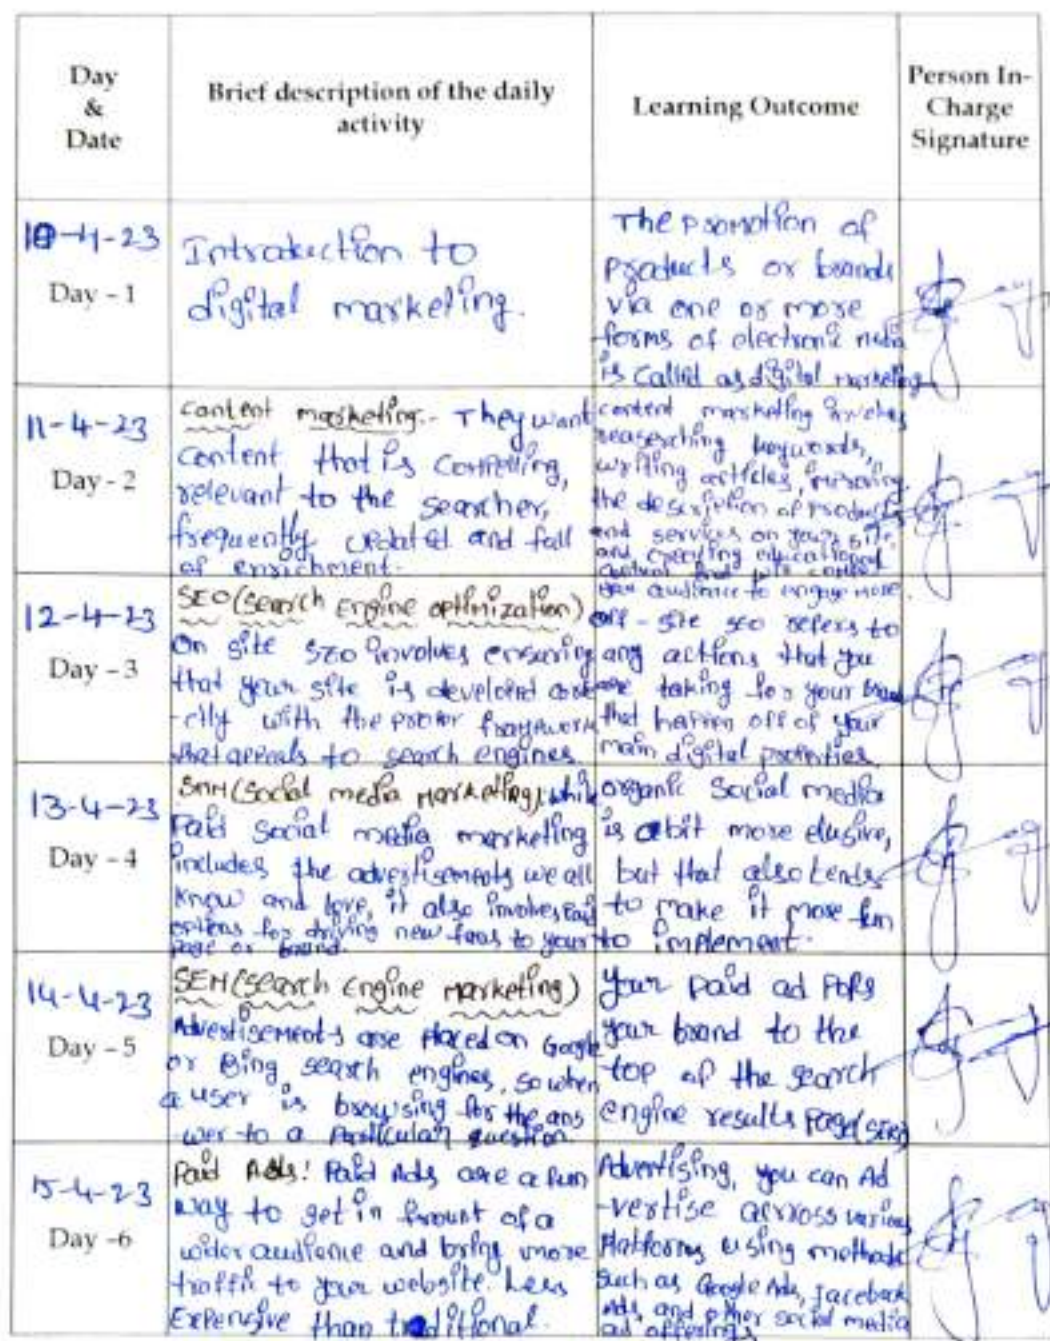 Day
&
Date
Brief description of the daily
activity
Learning Outcome
Person In-
Charge
Signature
10-4-23
Day - 1
Introduction to
digital marketing.
The promotion of
products or brands
via one or more
forms of electronic media
is called as digital marketing
11-4-23
Day - 2
content marketing:- They want
content that is compelling,
relevant to the searcher,
frequently updated and full
of enrichment.
content marketing involves
researching keywords,
writing articles, improving
the description of products
and services on your site,
and creating educational
content that will
your audience to engage more.
12-4-23
Day - 3
SEO (Search Engine optimization)
On site SEO involves ensuring
that your site is developed corre
-ctly with the proper framework
that appeals to search engines.
off - site seo refers to
any actions that you
are taking for your brand
that happen off of your
main digital properties.
13-4-23
Day - 4
SMM (Social media Marketing): while
Paid social media marketing
includes the advertisements we all
know and love, it also involves paid
options for driving new fans to your
page or brand.
organic Social media
is a bit more elusive,
but that also tends
to make it more fun
to implement.
14-4-23
Day - 5
SEM (Search Engine Marketing)
Advertisements are placed on Google
or Bing search engines, so when
a user is browsing for the ans
-wer to a particular question
your paid ad pops
your brand to the
top of the search
engine results page (SERP)
15-4-23
Day -6
Paid Ads: Paid Ads are a fun
way to get in frount of a
wider audience and bring more
traffic to your website. Less
Expensive than traditional.
Advertising, you can Ad
-vertise across various
Platforms using methods
such as Google Ads, facebook
Ads, and other social media
ad offerings